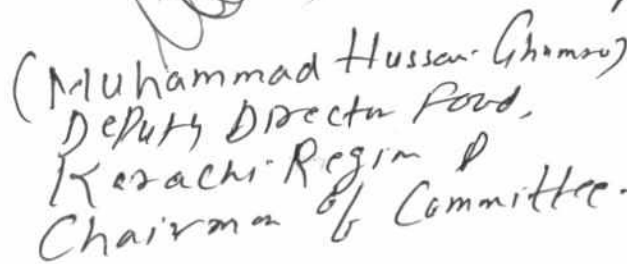 (Muhammad Hussan Ghumro)
Deputy Director Food,
Karachi Region &
Chairman of Committee.